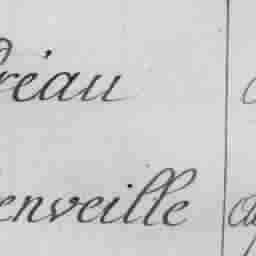 réau
enveille